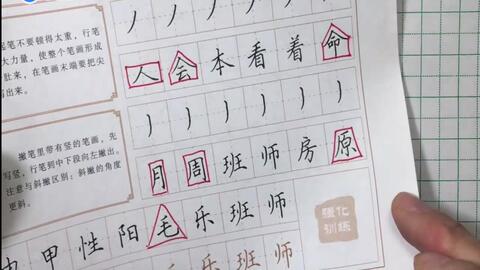 起笔不要顿得太重，行笔
大力量，使整个笔画形成
肚来，在笔画末端要把尖
出来。
人会本看着命
撇笔里带有竖的笔画，先
写竖，行笔到中下段向左撇出。
注意与斜撇区别：斜撇的角度
更斜。
月周班师房原
甲性阳毛乐班师
乐班师
强化
训练